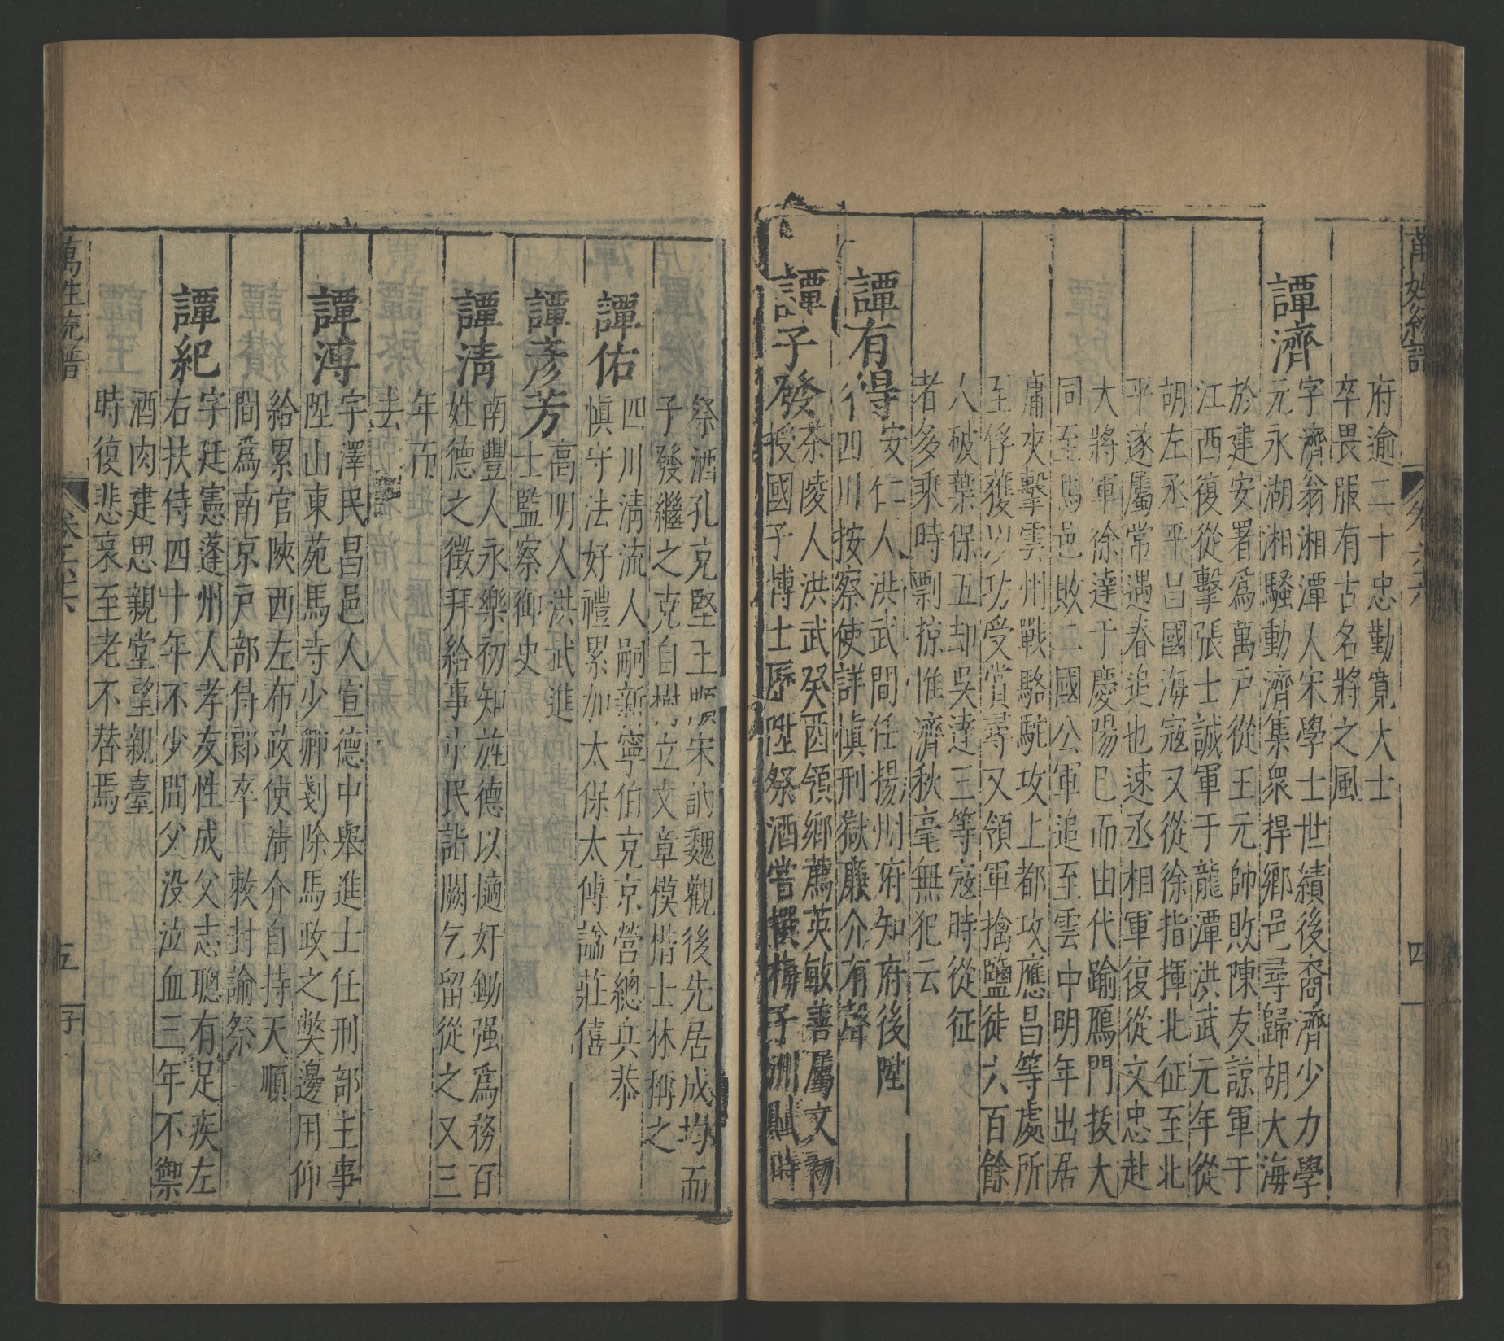 萬姓統譜
卷六六
四
府逾二十忠勤寬大士
卒畏服有古名將之風
譚濟
字濟翁湘潭人宋學士世績後裔濟少力學
元永湖湘騷動濟集衆捍鄉邑尋歸胡大海
於建安署爲萬戶從王元帥敗陳友諒軍于
江西復從擊張士誠軍于龍潭洪武元年從
胡左丞平昌國海寇又從徐指揮北征至北
平遂屬常遇春追也速丞相軍復從文忠赴
大將軍徐達于慶陽已而由代踰鴈門拔大
同至馬邑敗 國公軍追至雲中明年出居
庸夾擊雲州戰駱駝攻上都攻應昌等處所
至俘獲以功受賞尋又領軍擒鹽徒六百餘
人破葉保五却吳達三等寇時從征
者多乘時剽掠惟濟秋毫無犯云
譚有得
安仁人洪武間任揚州府知府後陞
四川按察使詳愼刑獄廉介有聲
譚子發
茶陵人洪武癸酉領鄉薦英敏善屬文初
授國子博士歷陞祭酒嘗撰梅子洲賦時
祭酒孔克堅王順宋訥魏觀後先居成均而
子發繼之克自樹立文章模楷士林稱之
譚佑
四川清流人嗣新寧伯克京營總兵恭
愼守法好禮累加太保太傅謚莊僖
譚彥芳
高明人洪武進
士監察御史
譚清
南豐人永樂初知旌德以擿奸鋤强爲務百
姓德之徵拜給事中民詣闕乞留從之又三
年而
去
譚溥
字澤民昌邑人宣德中舉進士任刑部主事
陞山東苑馬寺少卿剗除馬政之獘邊用仰
給累官陜西左布政使清介自持天順
間爲南京戸部侍郎卒 敕封諭祭
譚紀
字廷憲蓬州人孝友性成父志聰有足疾左
右扶侍四十年不少間父没泣血三年不禦
酒肉建思親堂望親臺
時復悲哀至老不替焉
萬姓統譜
卷六六
五